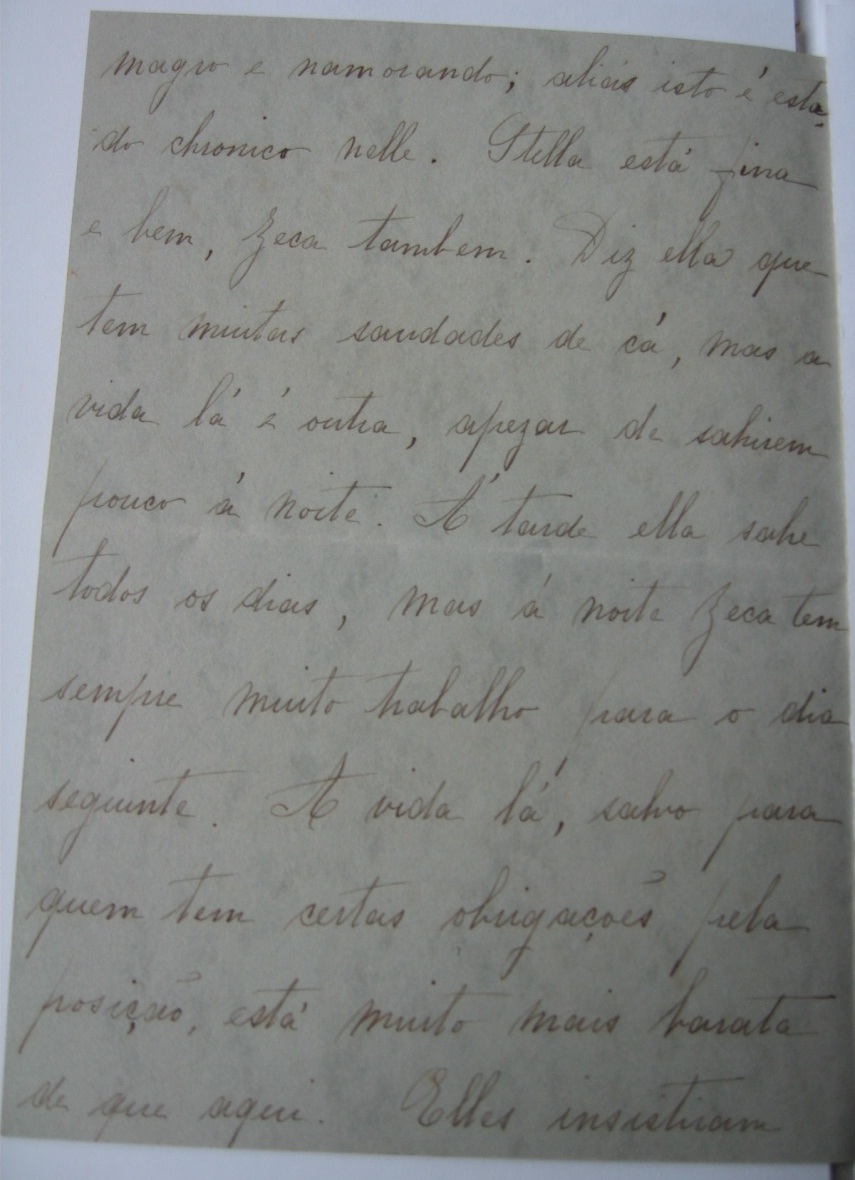 magro e namorando; aliás isto é esta-
do chronico nelle. Stella está fina
e bem, Zeca tambem. Diz ella que
tem muitas saudades de cá, mas a
vida lá é outra, apezar de sahirem
pouco á noite. Á tarde ella sahe
todos os dias, mas á noite Zeca tem
sempre muito trabalho para o dia
seguinte. A vida lá, salvo para
quem tem certas obrigações pela
posição, está muito mais barata
de que aqui. Elles insistiram